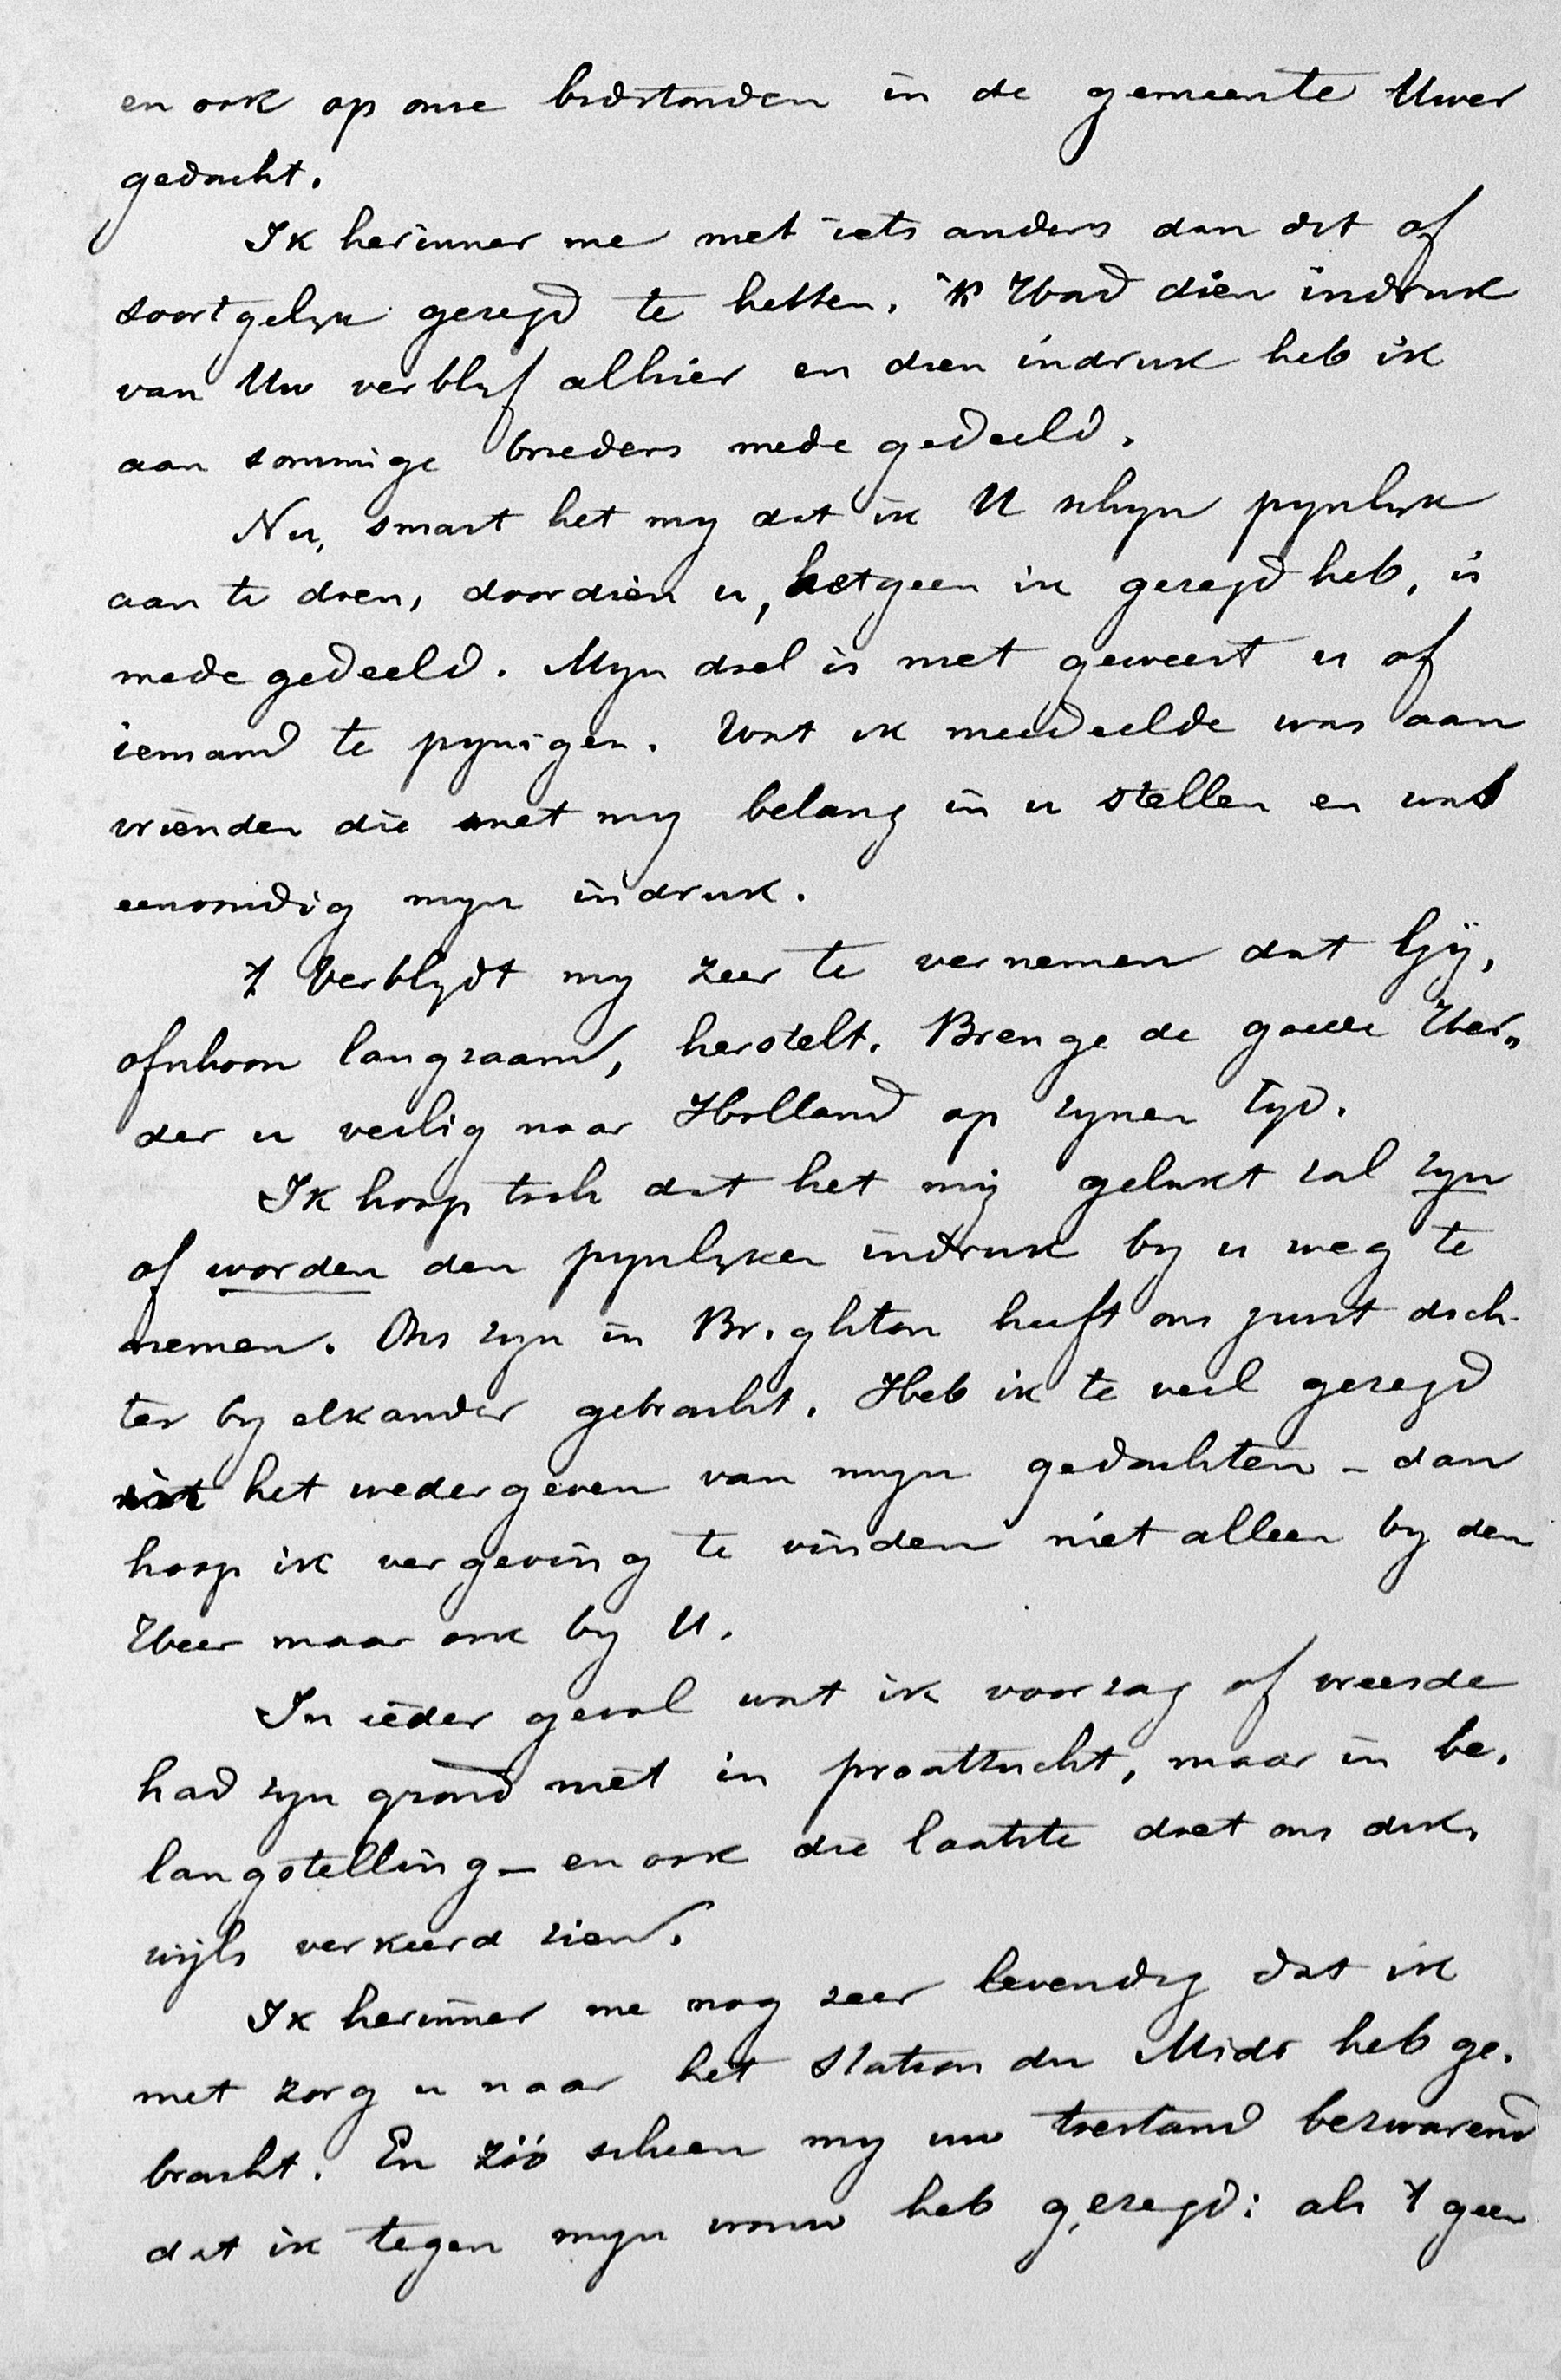 en ook op onze bidstonden in de gemeente Uwer
gedacht.
Ik herinner me niet iets anders dan dit of
soortgelijk gezegd te hebben. Ik Had dien indruk
van Uw verblijf alhier en dien indruk heb ik
aan sommige broeders mede gedeeld.
Nu, smart het mij dat ik U schijn pijnlijk
aan te doen, doordien u, hetgeen ik gezegd heb, is
mede gedeeld. Mijn doel is niet geweest u of
iemand te pijnigen. Wat ik meedeelde was aan
vrienden die met mij belang in u stellen en was
eenvoudig mijn indruk.
't Verblijdt mij zeer te vernemen dat Gij,
ofschoon langzaam, herstelt. Brenge de goede Her„
der u veilig naar Holland op zijnen tijd.
Ik hoop toch dat het mij gelukt zal zijn
of worden den pijnlijken indruk bij u weg te
nemen. Ons zijn in Brighton heeft ons juist dich-
ter bij elkander gebracht. Heb ik te veel gezegd
in het wedergeven van mijn gedachten - dan
hoop ik vergeving te vinden niet alleen bij den
Heer maar ook bij U.
In ieder geval wat ik voorzag of vreesde
had zijn grond niet in praatzucht, maar in be-
langstelling - en ook die laatste doet ons dik-
wijls verkeerd zien.
Ik herinner me nog zeer levendig dat ik
met zorg u naar het Station du Midi heb ge-
bracht. En zóó scheen mij uw toestand bezwarend
dat ik tegen mijn vrouw heb gezegd: als 't geen